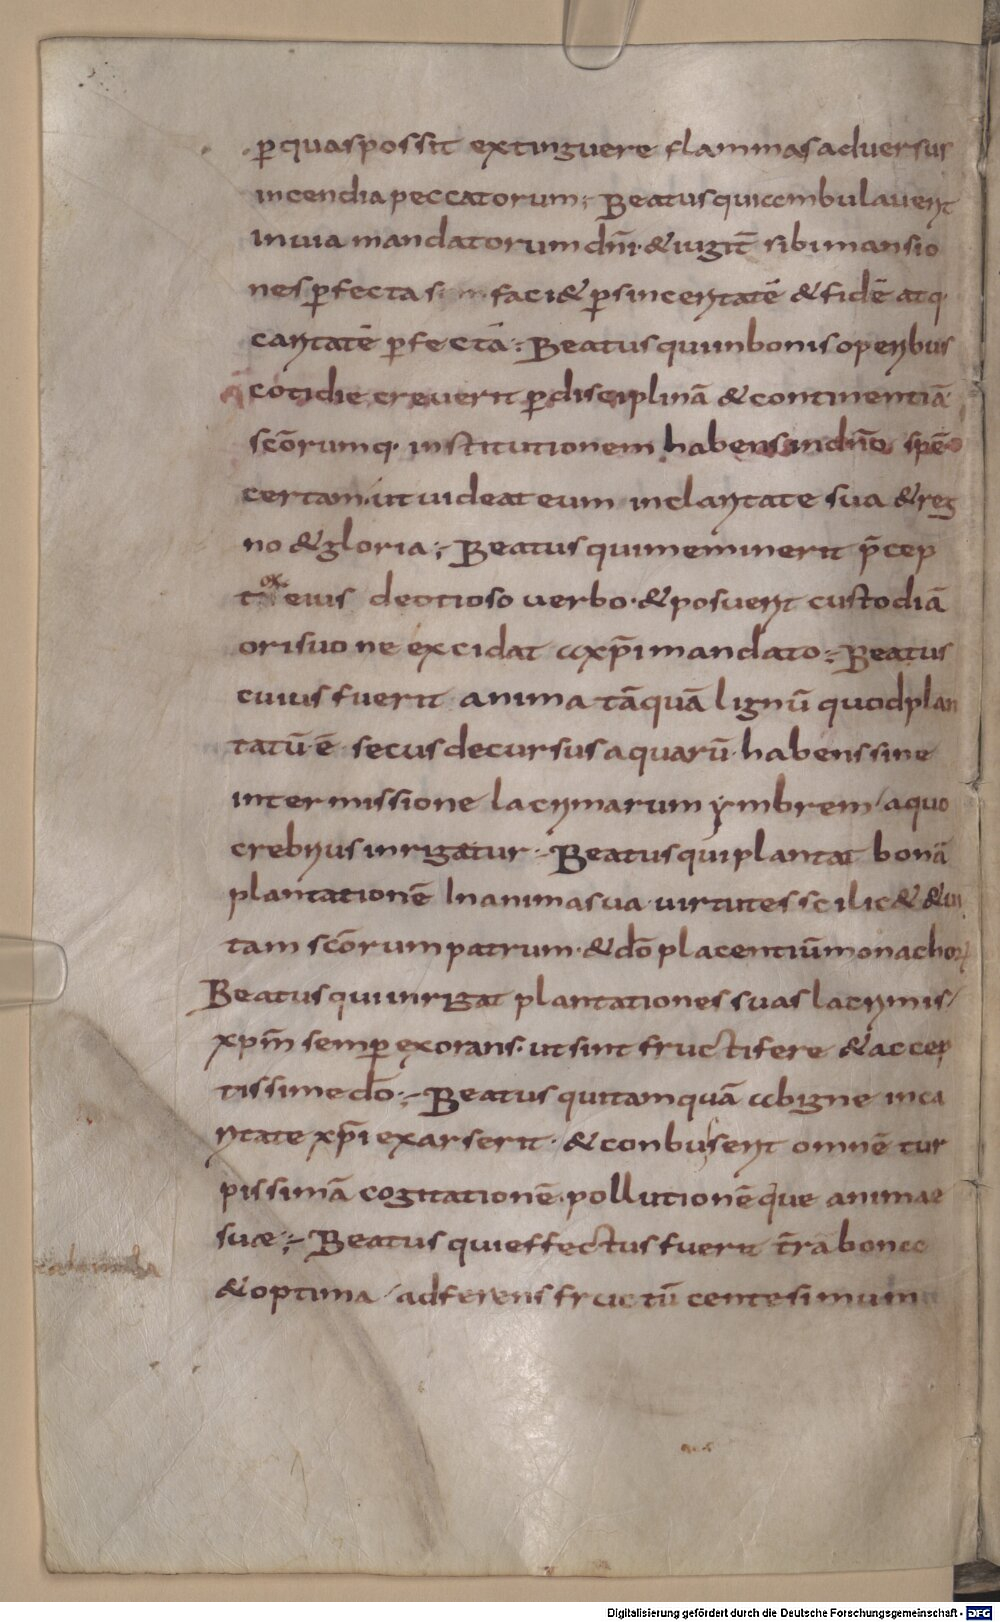 ꝑ quas possit extinguere flammas aduersus
incendia peccatorum; Beatus qui ambulauerit
in uia mandatorum dn̄i· & iugit̄ sibi mansio
nes ꝑfectas faci& ꝑ sinceritatē & fidē atq·
caritatē ꝑfectā; Beatus qui in bonis operibus
cotidie creuerit ꝑ disciplinā & continentiā
sc̄orumq· institutionem habens in dn̄o spē
certam· ut uideat eum in claritate sua & reg
no & gloria; Beatus qui meminerit p̄cep
torꝝ eius de otioso uerbo· & posuerit custodiā
ori suo ne excidat a xp̄i mandato; Beatus
cuius fuerit anima tāquā lignū quod plan
tatū ē secus decursus aquarū· habens sine
intermissione lacrimarum ymbrem / a quo
crebrius inrigatur; Beatus qui plantat bonā
plantationē In anima sua uirtutes scilic& & ui
tam sc̄orum patrum· & dō placentiū monachorꝝ
Beatus qui inrigat plantationes suas lacrimis /
xpm̄ semꝑ exorans· ut sint fructifere & accep
tissime dō; Beatus qui tamquā ab igne in ca
ritate xp̄i exarserit· & conbuserit omnē tur
pissimā cogitationē· pollutionēque animae
suæ; Beatus qui effectus fuerit t̄ra bona
& optima / adferens fructū centesimum
Digitalisierung gefördert durch die Deutsche Forschungsgemeinschaft - DFG